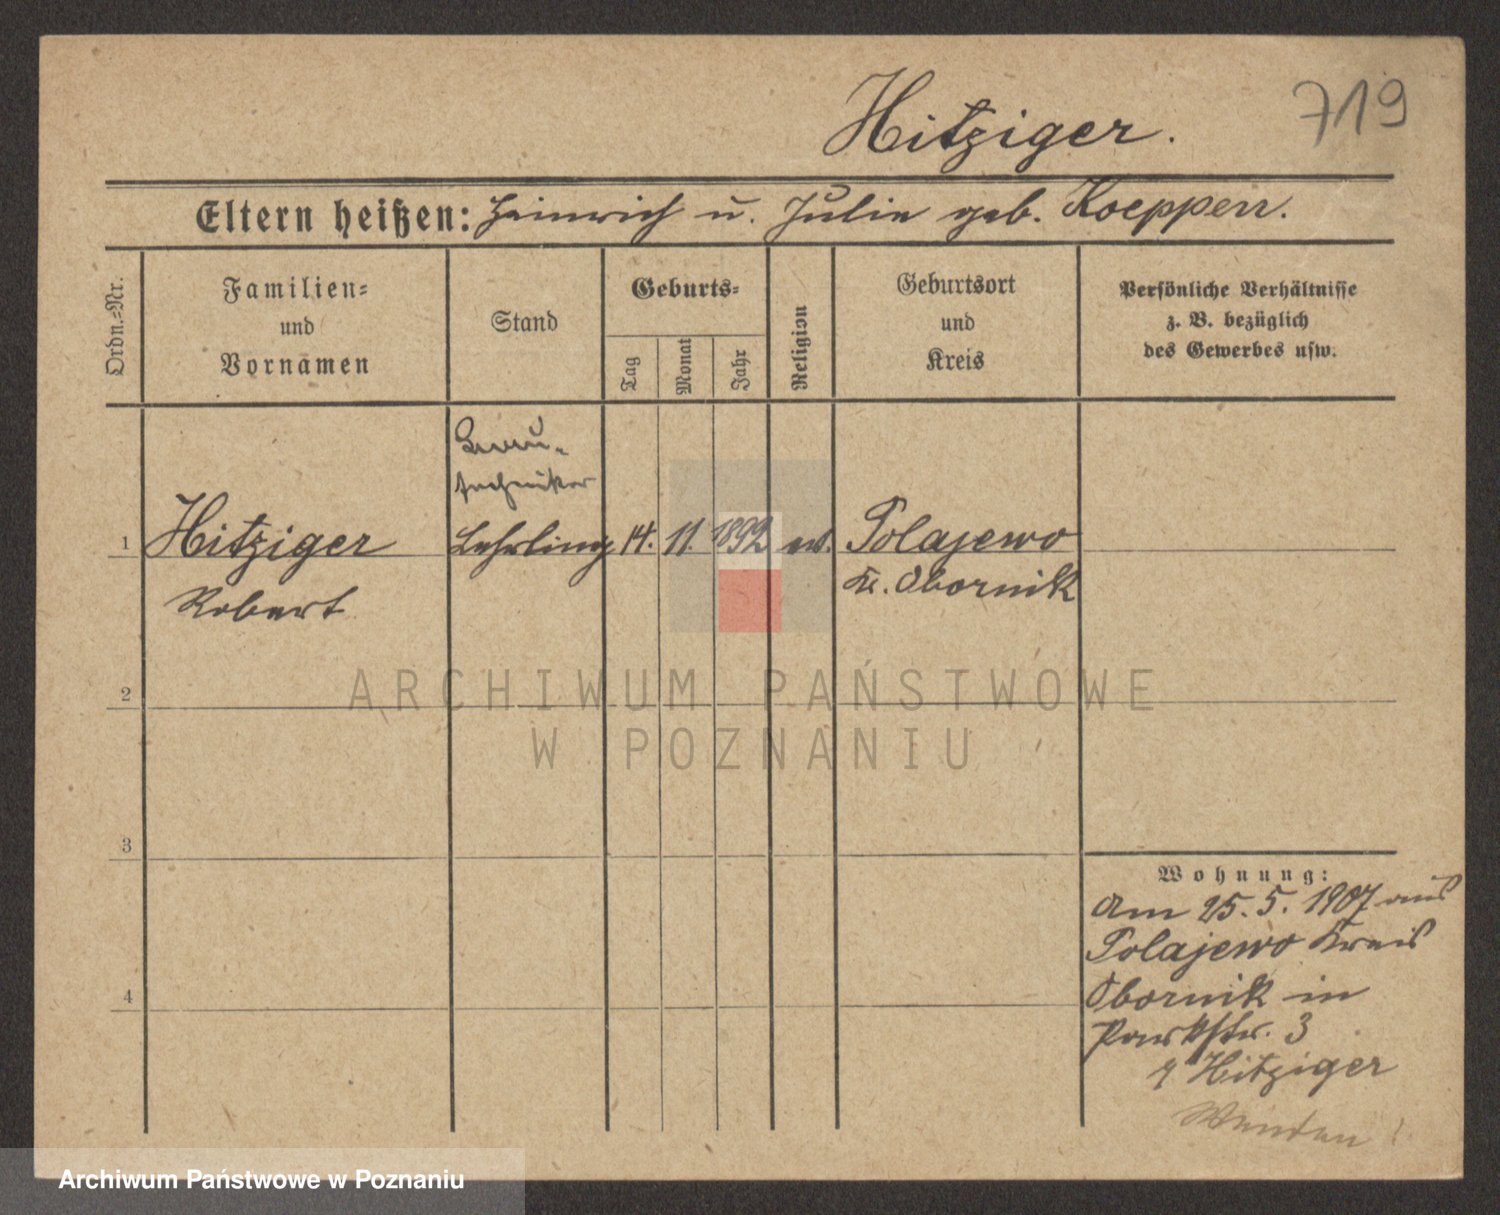 719
Hitziger.
Eltern heißen: Heinrich u. Julie geb. Koeppen.
Ordn.-Nr.
Familien-
und
Vornamen
Stand
Geburts-
Tag
Monat
Jahr
Religion
Geburtsort
und
Kreis
Persönliche Verhältnisse
z. B. bezüglich
des Gewerbes usw.
techniker
1 Hitziger Lehrling 14. 11. 1892 ev. Polajewo
Robert Kr. Obornik
2
3
4
Wohnung:
Am 25. 5. 1907 aus
Polajewo Kreis
Obornik in
Parkstr. 3
Hitziger
Wenden!
ARCHIWUM PAŃSTWOWE
W POZNANIU
Archiwum Państwowe w Poznaniu